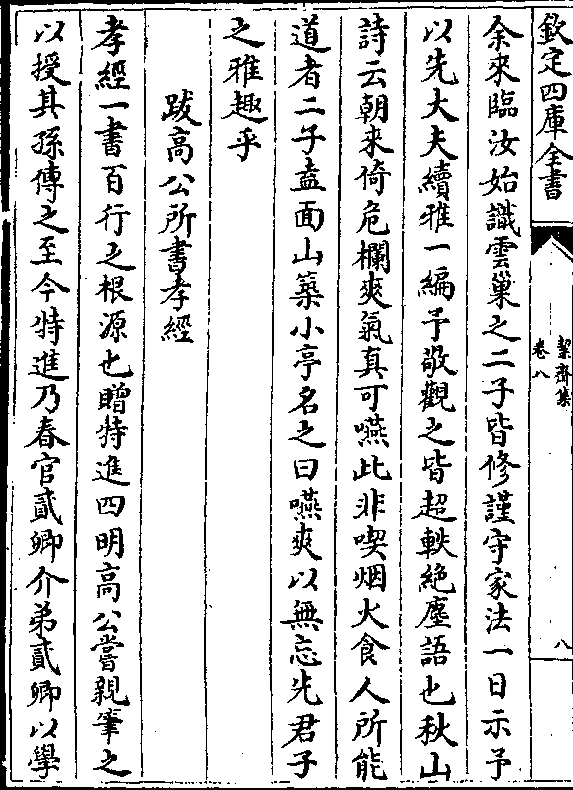 欽定四庫全書
絜齋集
卷八
八
余來臨汝始識雲巢之二子皆修謹守家法一日示予
以先大夫續雅一編予敬觀之皆超軼絶塵語也秋山
詩云朝來倚危欄爽氣真可嚥此非喫烟火食人所能
道者二子盍面山築小亭名之曰嚥爽以無忘先君子
之雅趣乎
跋高公所書孝經
孝經一書百行之根源也贈特進四明高公嘗親筆之
以授其孫傳之至今特進乃春官貳卿介弟貳卿以學